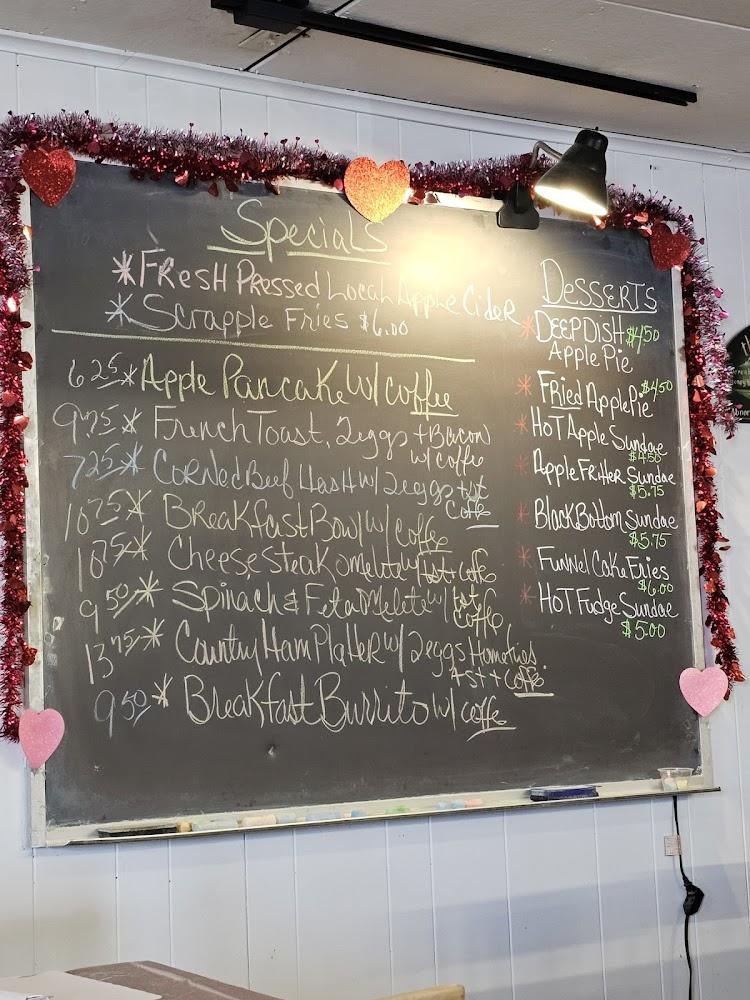 Specials
*Fresh Pressed Local Apple Cider
*Scrapple Fries $6.00
6.25 * Apple Pancake w/ coffee
9.75 * French Toast, 2eggs + Bacon
w/ coffee
7.25 * Corned Beef Hash w/ 2eggs tst
Coffe
10.75 * Breakfast Bowl w/ coffee
10.75 * Cheesesteak omelete w/ tst + coffe
9.50 * Spinach & Feta Omelete w/ tst
Coffe
13.75 * Country Ham Platter w/ 2eggs Homefries
tst + Coffe
9.50 * Breakfast Burrito w/ coffe
Desserts
* Deep Dish $4.50
Apple Pie
* Fried Apple Pie $4.50
* Hot Apple Sundae
$4.50
* Apple Fritter Sundae
$5.75
* Black Bottom Sundae
$5.75
* Funnel Cake Fries
$6.00
* Hot Fudge Sundae
$5.00